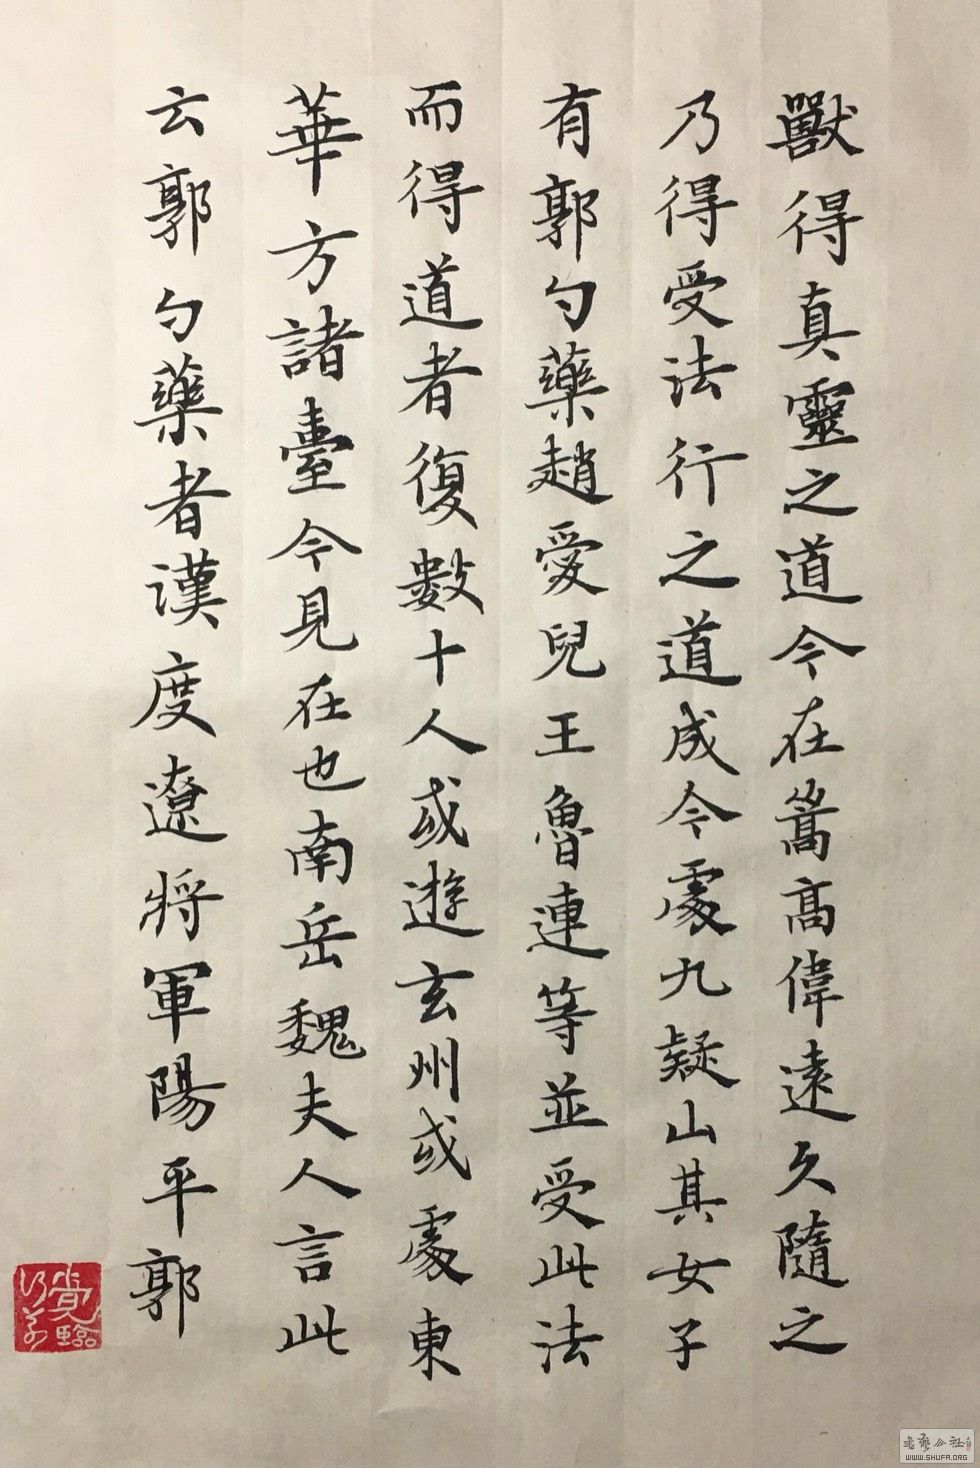 獸得真靈之道今在嵩高偉遠久隨之
乃得受法行之道成今處九疑山其女子
有郭勺藥趙愛兒王魯連等並受此法
而得道者復數十人或遊玄州或處東
華方諸臺今見在也南岳魏夫人言此
云郭勺藥者漢度遼將軍陽平郭
WWW.SHUFA.ORG